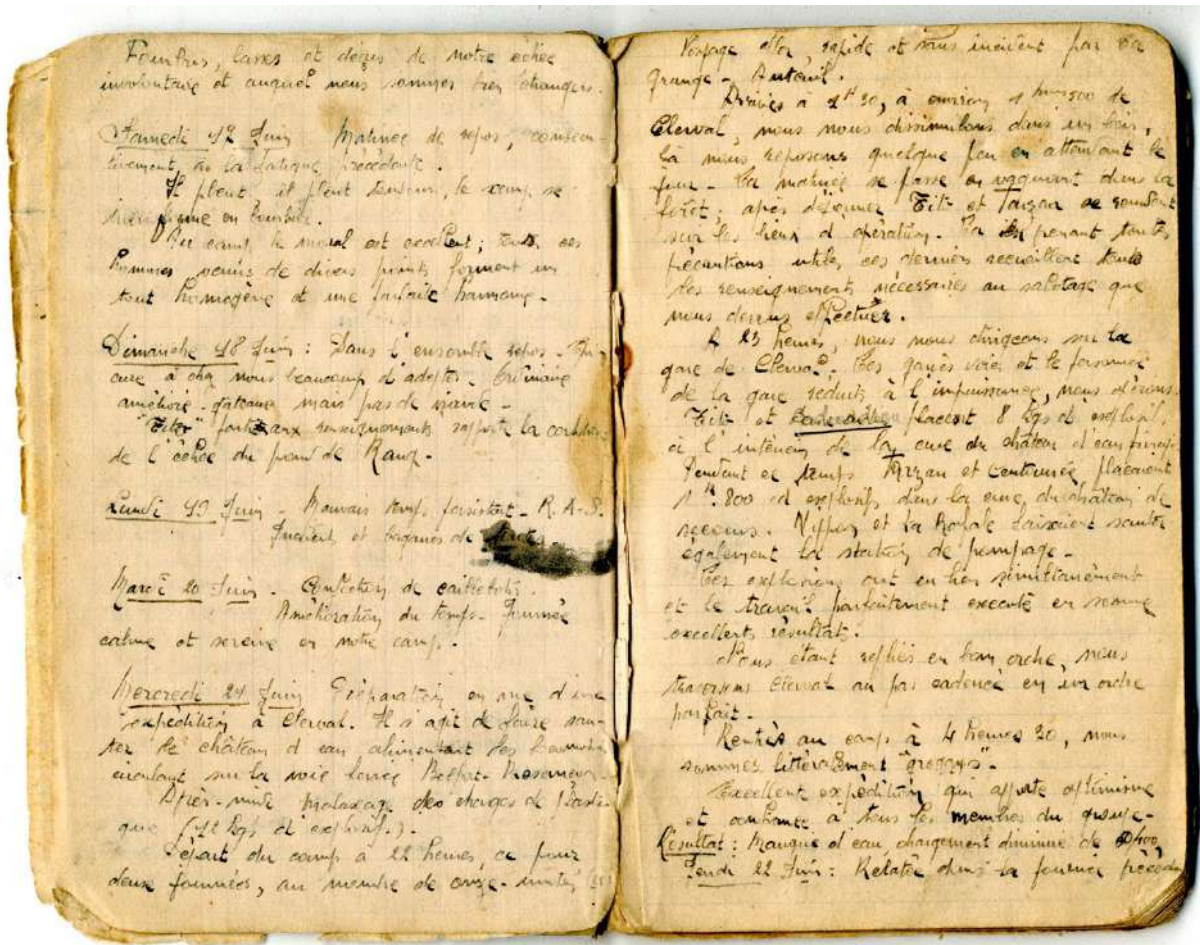 Fourbus, lassés et déçus de notre échec
involontaire et auquel nous sommes bien étrangers.
Samedi 17 Juin Matinée de repos, consécu-
tivement, à la fatigue précédente.
Il pleut il pleut toujours, le camp se
transforme en bourbier.
Au camp, le moral est excellent ; tous ces
hommes venus de divers points forment un
tout homogène et une parfaite harmonie.
Dimanche 18 Juin : Dans l'ensemble repos -
cure a chez nous beaucoup d'adeptes. Ordinaire
amélioré - gateaux mais pas de viande -
"Tito" parti aux renseignements rapporte la
de l'échec du pont de Rang.
Lundi 19 Juin - Mauvais temps persistant - R.A.S.
et bagarres de
Mardi 20 Juin - Confection de caillebotis.
Amélioration du temps - Journée
calme et sereine en notre camp.
Mercredi 21 Juin Préparation en vue d'une
expédition à Clerval. Il s'agit de faire sau-
ter le château d'eau alimentant les locomotives
circulant sur la voie ferrée Belfort-Besançon.
Après-midi malaxage des charges de plasti-
que (12 kgs d'explosif.).
Départ du camp à 22 heures, ce pour
deux journées, au nombre de onze -
Voyage aller, rapide et sans incident par la
Grange - Auteuil.
Arrivés à 2H30, à environ 1 500 de
Clerval, nous nous dissimulons dans un bois,
là nous reposons quelque peu en attendant le
jour - La matinée se passe en vaquant dans la
forêt ; après déjeuner Tito et Tarzan se rendent
sur les lieux d'opération. La en prenant toutes
précautions utiles ces derniers recueillent tous
les renseignements nécessaires au sabotage que
nous devons effectuer.
A 23 heures, nous nous dirigeons sur la
gare de Clerval. Les gardes voies et le personnel
de la gare réduits à l'impuissance, nous
Tito et placent 8 kgs d'explosifs
à l'intérieur de la cuve du château d'eau
Pendant ce temps Tarzan et Centurée plaçaient
1K800 d'explosifs dans la cuve, du château de
secours. Nippon et la Royale faisaient sauter
également la station de pompage -
Les explosions ont eu lieu simultanément
et le travail parfaitement executé en somme
excellents résultats.
Nous étant repliés en bon ordre, nous
traversons Clerval au pas cadencé en un ordre
parfait -
Rentrés au camp à 4 heures 30, nous
sommes littéralement "groggys" -
Excellente expédition qui apporte optimisme
et confiance à tous les membres du groupe -
Résultat : Manque d'eau, chargement diminué de
Jeudi 22 Juin : Relatée dans la journée